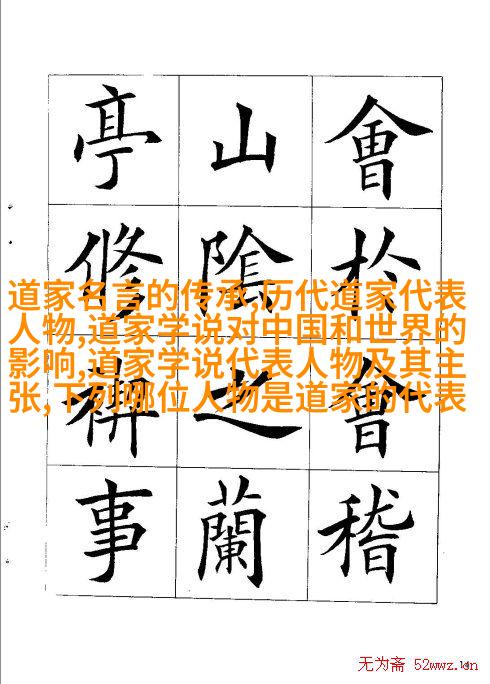 會於會稽
山陰之蘭
亭修禊事
道家名言的传承,历代道家代表
人物,道家学说对中国和世界的
影响,道家学说代表人物及其主
张,下列哪位人物是道家的代表
无为斋 52wwz.cn